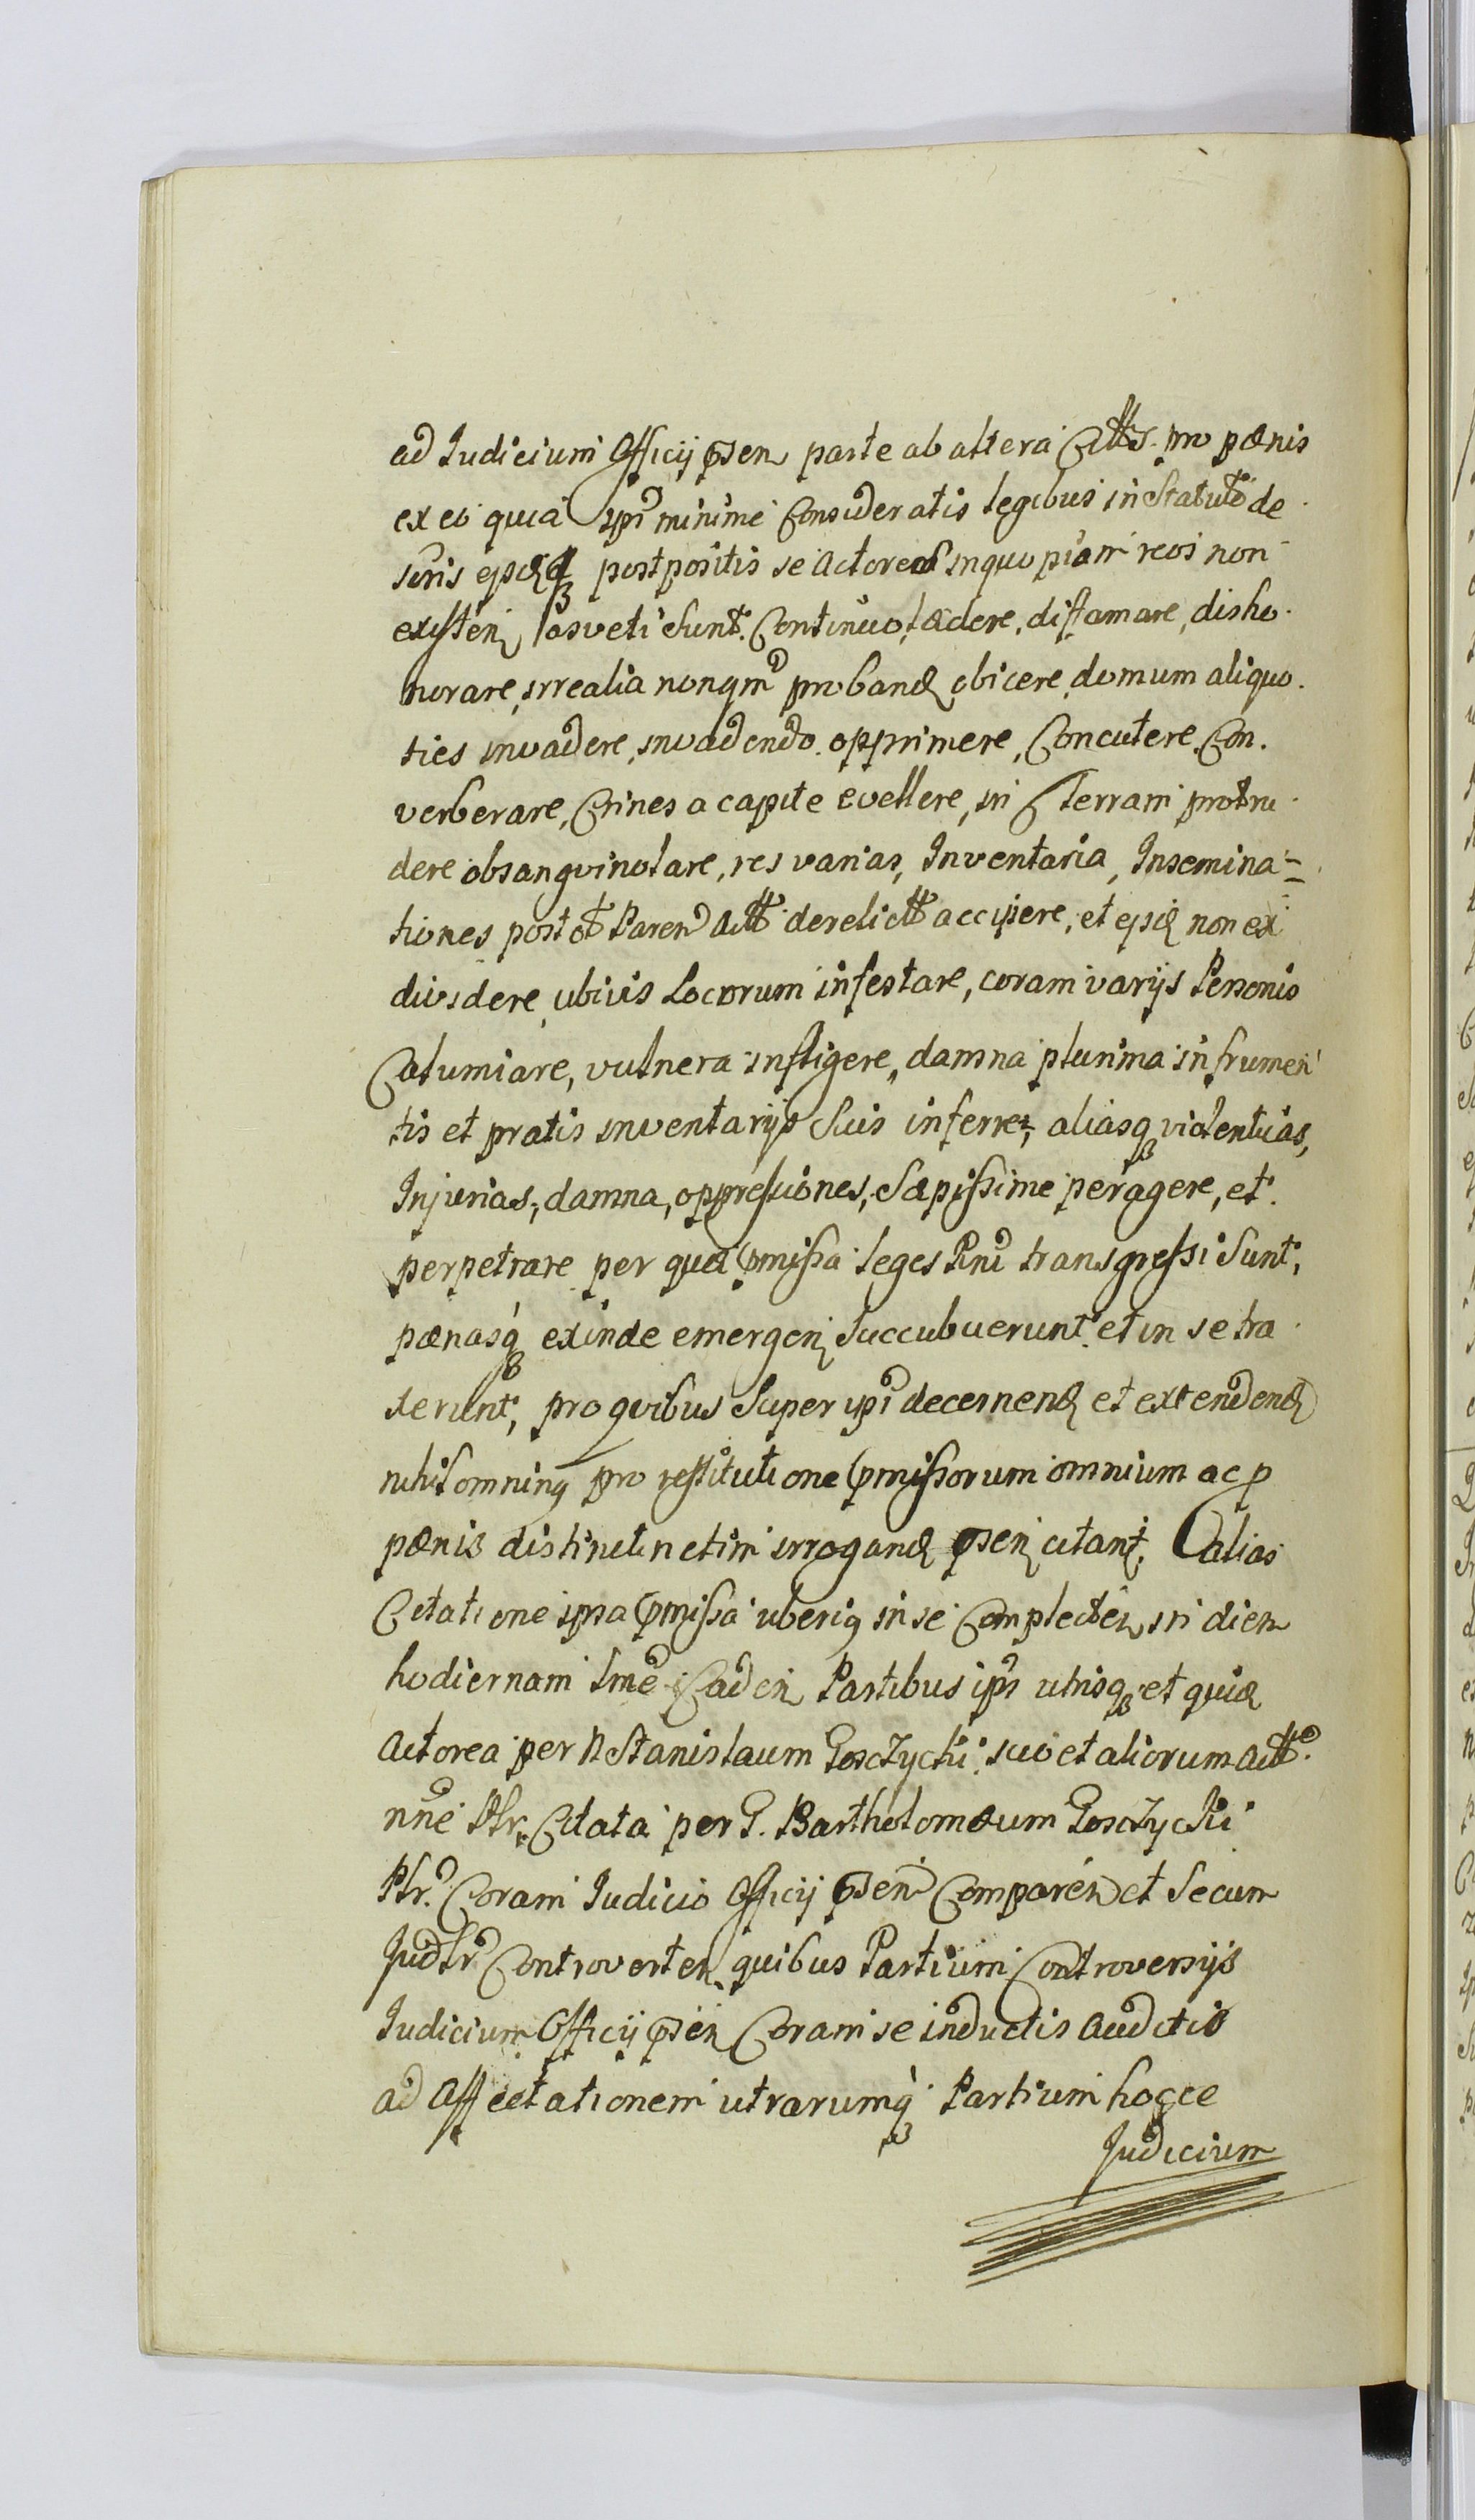 ad Iudicium Officij pñsen parte ab altera Citts. pro pænis
ex eo quia ipñ minime Consideratis legibus in Statuto de
postpositis se Actoreos in quopiam reos non
existen asveti sunt Continuo lædere, diffamare, disho-
norare, irrealia nonqm proband obicere, domum aliquo-
ties invadere, invadendo opprimere, Concutere, Con-
verberare, Crines a capite evellere, in terram protru-
dere obsangvinolare, res varias, Inventaria, Insemina=
tiones post Paren Actt derelictt accipere, et non ex
dividere, ubivis Locorum infestare, coram varijs Personis
Calumiare, vulnera infligere, damna plurima in frumen
tis et pratis inventarijs Suis inferre, aliasq violentias,
Injurias, damna, oppressiones, Sæpissime peragere, et
perpetrare per quæ pmissa leges Rni transgressi Sunt,
pænasq exinde emergen Succubuerunt et in se tra
xerunt, pro qvibus Super ipñ decernend et extendend
nihilomning pro restitutione pmissorum omnium ac p
pænis distinctim irrogand pñsen citant, alias
Citatione ipsa pmissa uberig in se Complecten in diem
hodiernam lme Caden Partibus ipñ utrisq et quid
Actorea per N Stanislaum Goszycki suo et aliorum Actt
nñe Plr. Citata per G. Bartholomæum Goszycki
Plr. Coram Iudicio Officij pñsen Comparen et Secum
Judlr Controverten, quibus Partium Controversijs
Iudicium Officij pñsen Coram se inductis Auditis
ad Affectationem utrarumq Partium hocce
Judicium